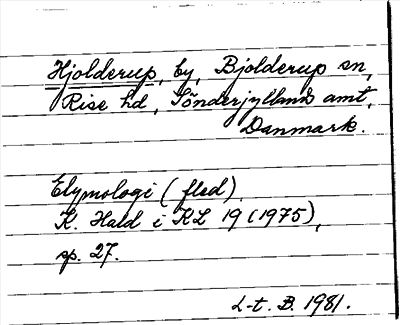 Hjolderup, by, Bjolderup sn,
Rise hd, Sönderjyllands amt,
Danmark.
Etymologi (fled).
K. Hald i KL 19 (1975),
sp. 27.
L-t. B. 1981.